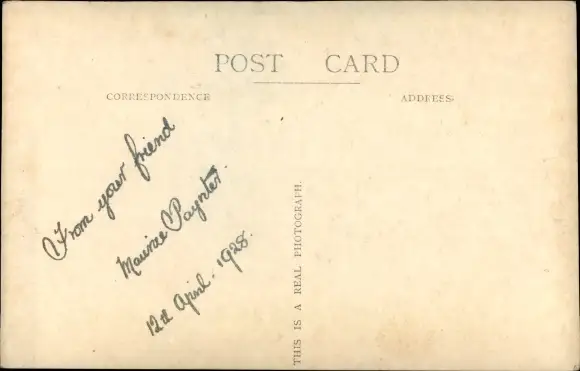 POST CARD
CORRESPONDENCE
ADDRESS
From your friend
Maurice Paynter.
12th April. 1928.
THIS IS A REAL PHOTOGRAPH.